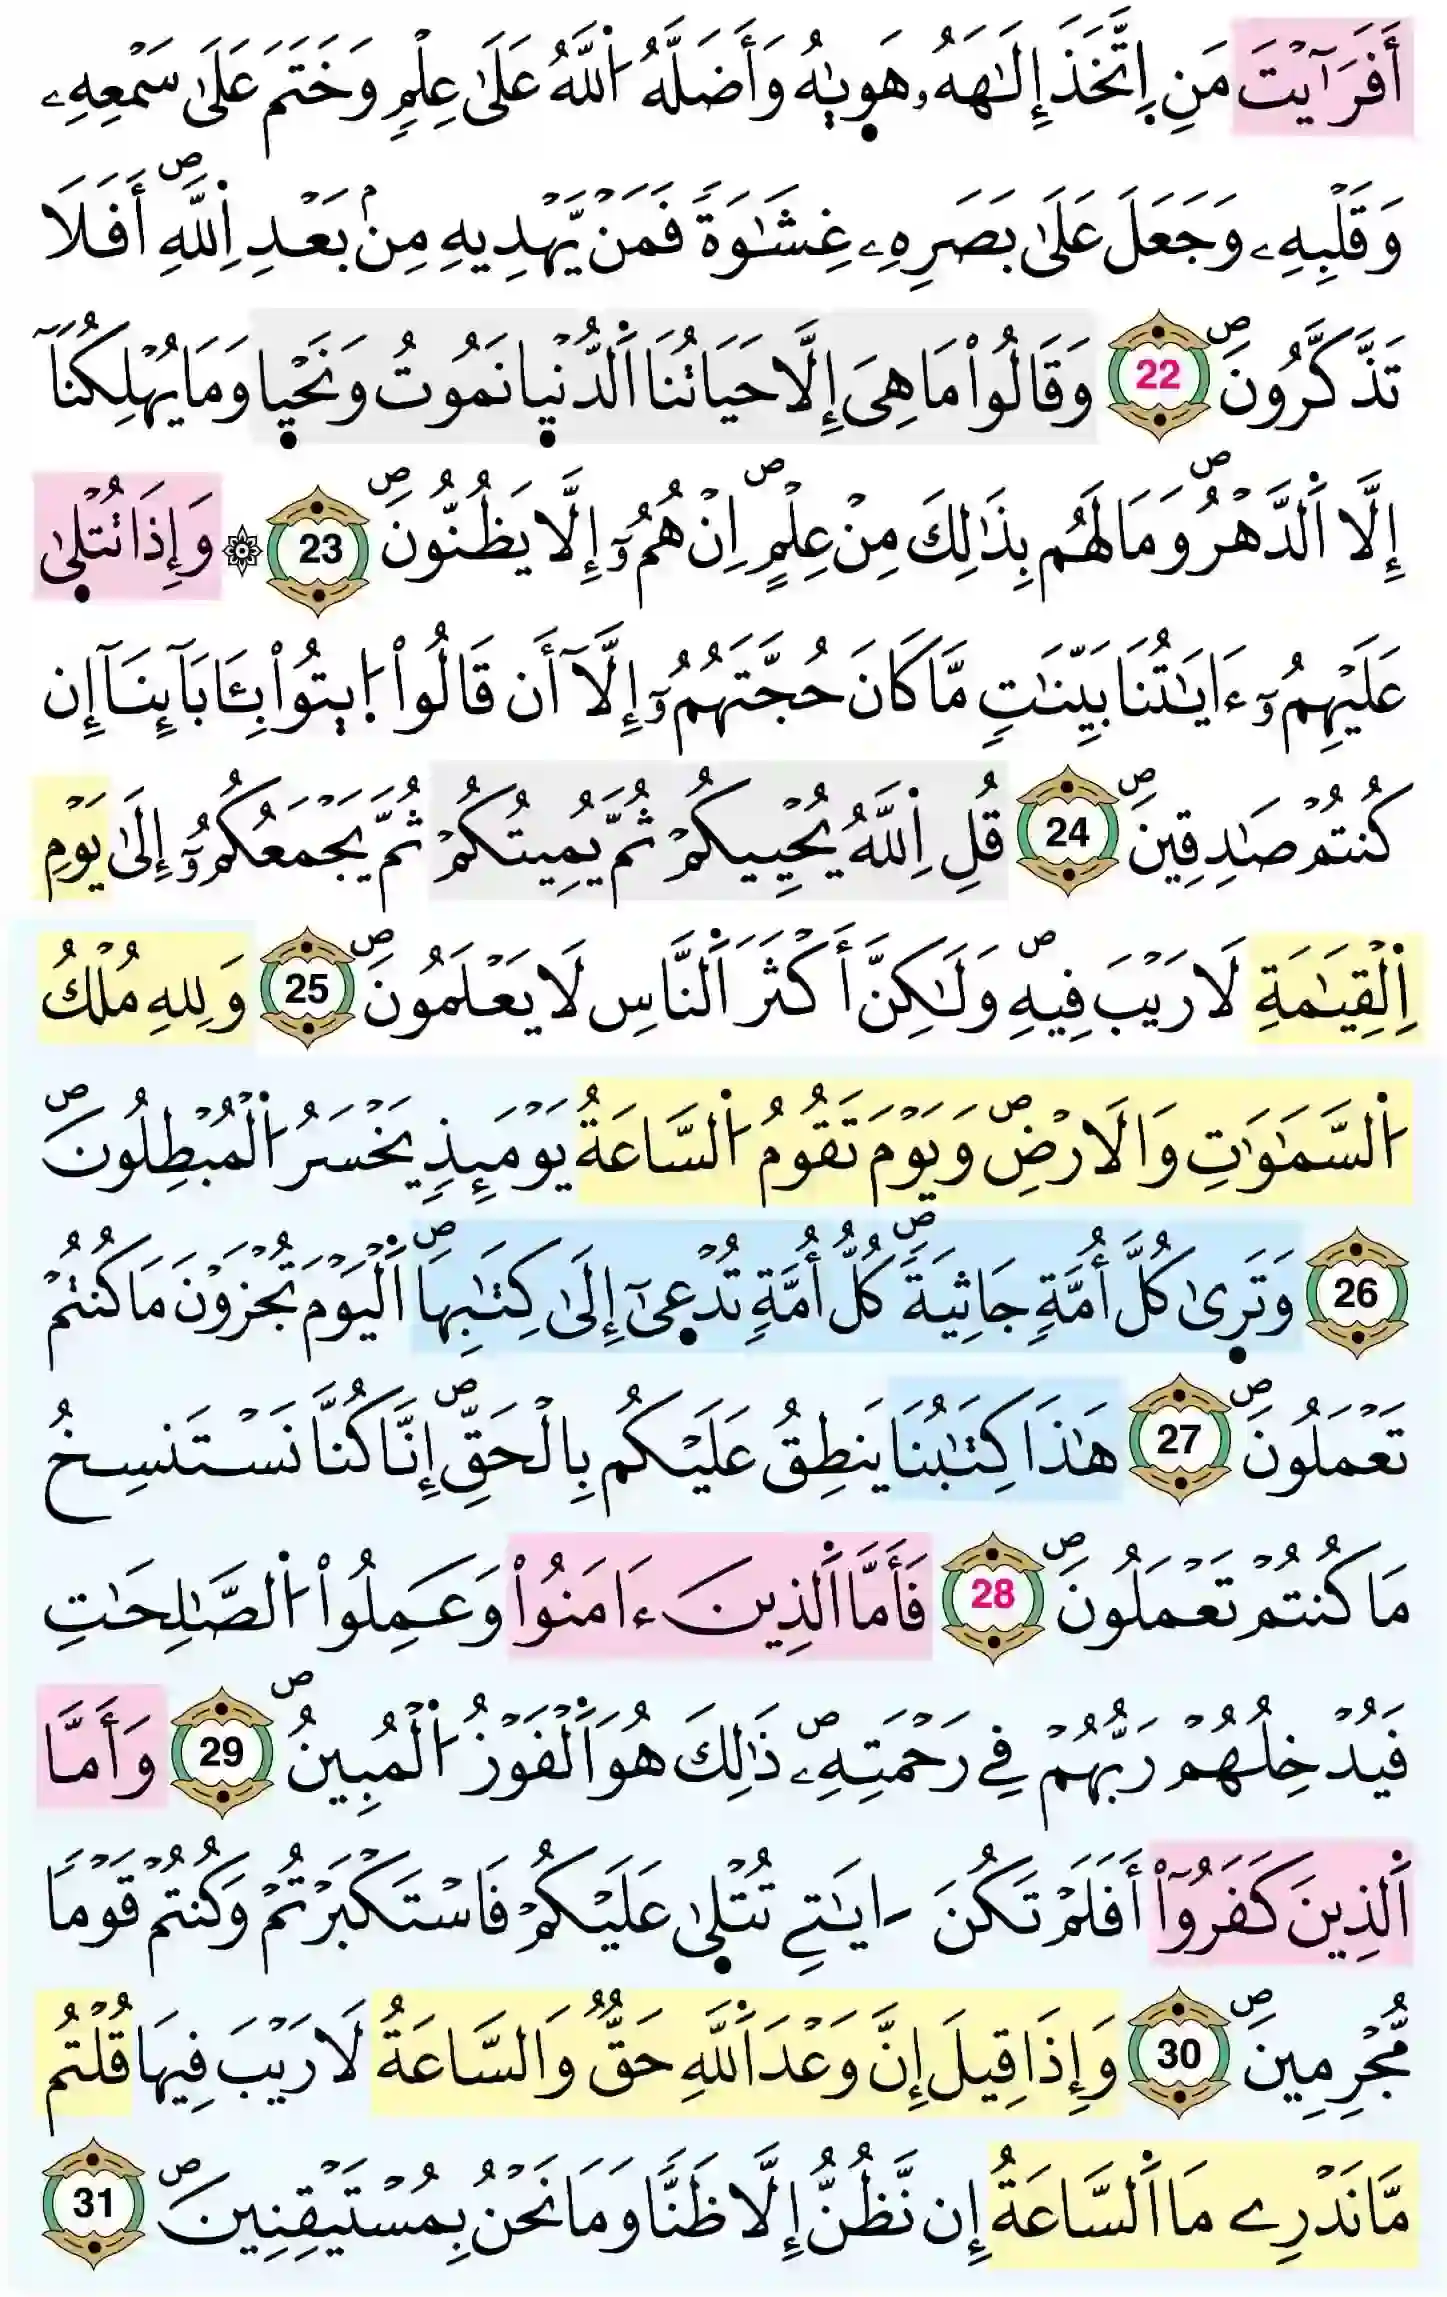 أَفَرَآيْتَ مَنِ اِتَّخَذَ إِلَٰهَهُۥ هَوٜىٰهُ وَأَضَلَّهُ اُ۬للَّهُ عَلَىٰ عِلْمٖ وَخَتَمَ عَلَىٰ سَمْعِهِۦ
وَقَلْبِهِۦ وَجَعَلَ عَلَىٰ بَصَرِهِۦ غِشَٰوَةٗ فَمَنْ يَّهْدِيهِ مِنۢ بَعْدِ اِ۬للَّهِۖ أَفَلَا
تَذَّكَّرُونَۖ 22 وَقَالُواْ مَا هِيَ إِلَّا حَيَاتُنَا اَ۬لدُّنْيٜا نَمُوتُ وَنَحْيٜا وَمَا يُهْلِكُنَآ
إِلَّا اَ۬لدَّهْرُۖ وَمَا لَهُم بِذَٰلِكَ مِنْ عِلْمٍۖ اِنْ هُمُۥٓ إِلَّا يَظُنُّونَۖ 23 ۞ وَإِذَا تُتْلٜىٰ
عَلَيْهِمُۥٓ ءَايَٰتُنَا بَيِّنَٰتٖ مَّا كَانَ حُجَّتَهُمُۥٓ إِلَّآ أَن قَالُواْ اُ۪يتُواْ بِـَٔابَآئِنَآ إِن
كُنتُمْ صَٰدِقِينَۖ 24 قُلِ اِ۬للَّهُ يُحْيِيكُمْ ثُمَّ يُمِيتُكُمْ ثُمَّ يَجْمَعُكُمُۥٓ إِلَىٰ يَوْمِ
اِ۬لْقِيَٰمَةِ لَا رَيْبَ فِيهِۖ وَلَٰكِنَّ أَكْثَرَ اَ۬لنَّاسِ لَا يَعْلَمُونَۖ 25 وَلِلهِ مُلْكُ
اُ۬لسَّمَٰوَٰتِ وَالَارْضِۖ وَيَوْمَ تَقُومُ اُ۬لسَّاعَةُ يَوْمَئِذٖ يَخْسَرُ اُ۬لْمُبْطِلُونَۖ
26 وَتَرٜىٰ كُلَّ أُمَّةٖ جَاثِيَةٗۖ كُلُّ أُمَّةٖ تُدْعٜىٰٓ إِلَىٰ كِتَٰبِهَاۖ اَ۬لْيَوْمَ تُجْزَوْنَ مَا كُنتُمْ
تَعْمَلُونَۖ 27 هَٰذَا كِتَٰبُنَا يَنطِقُ عَلَيْكُم بِالْحَقِّۖ إِنَّا كُنَّا نَسْتَنسِخُ
مَا كُنتُمْ تَعْمَلُونَۖ 28 فَأَمَّا اَ۬لذِينَ ءَامَنُواْ وَعَمِلُواْ اُ۬لصَّٰلِحَٰتِ
فَيُدْخِلُهُمْ رَبُّهُمْ فِي رَحْمَتِهِۦۖ ذَٰلِكَ هُوَ اَ۬لْفَوْزُ اُ۬لْمُبِينُۖ 29 وَأَمَّا
اَ۬لذِينَ كَفَرُوٓاْ أَفَلَمْ تَكُنَ ـ اَيَٰتِے تُتْلٜىٰ عَلَيْكُمْ فَاسْتَكْبَرْتُمْ وَكُنتُمْ قَوْماٗ
مُّجْرِمِينَۖ 30 وَإِذَا قِيلَ إِنَّ وَعْدَ اَ۬للَّهِ حَقّٞ وَالسَّاعَةُ لَا رَيْبَ فِيهَا قُلْتُم
مَّا نَدْرِے مَا اَ۬لسَّاعَةُ إِن نَّظُنُّ إِلَّا ظَنّاٗ وَمَا نَحْنُ بِمُسْتَيْقِنِينَۖ 31